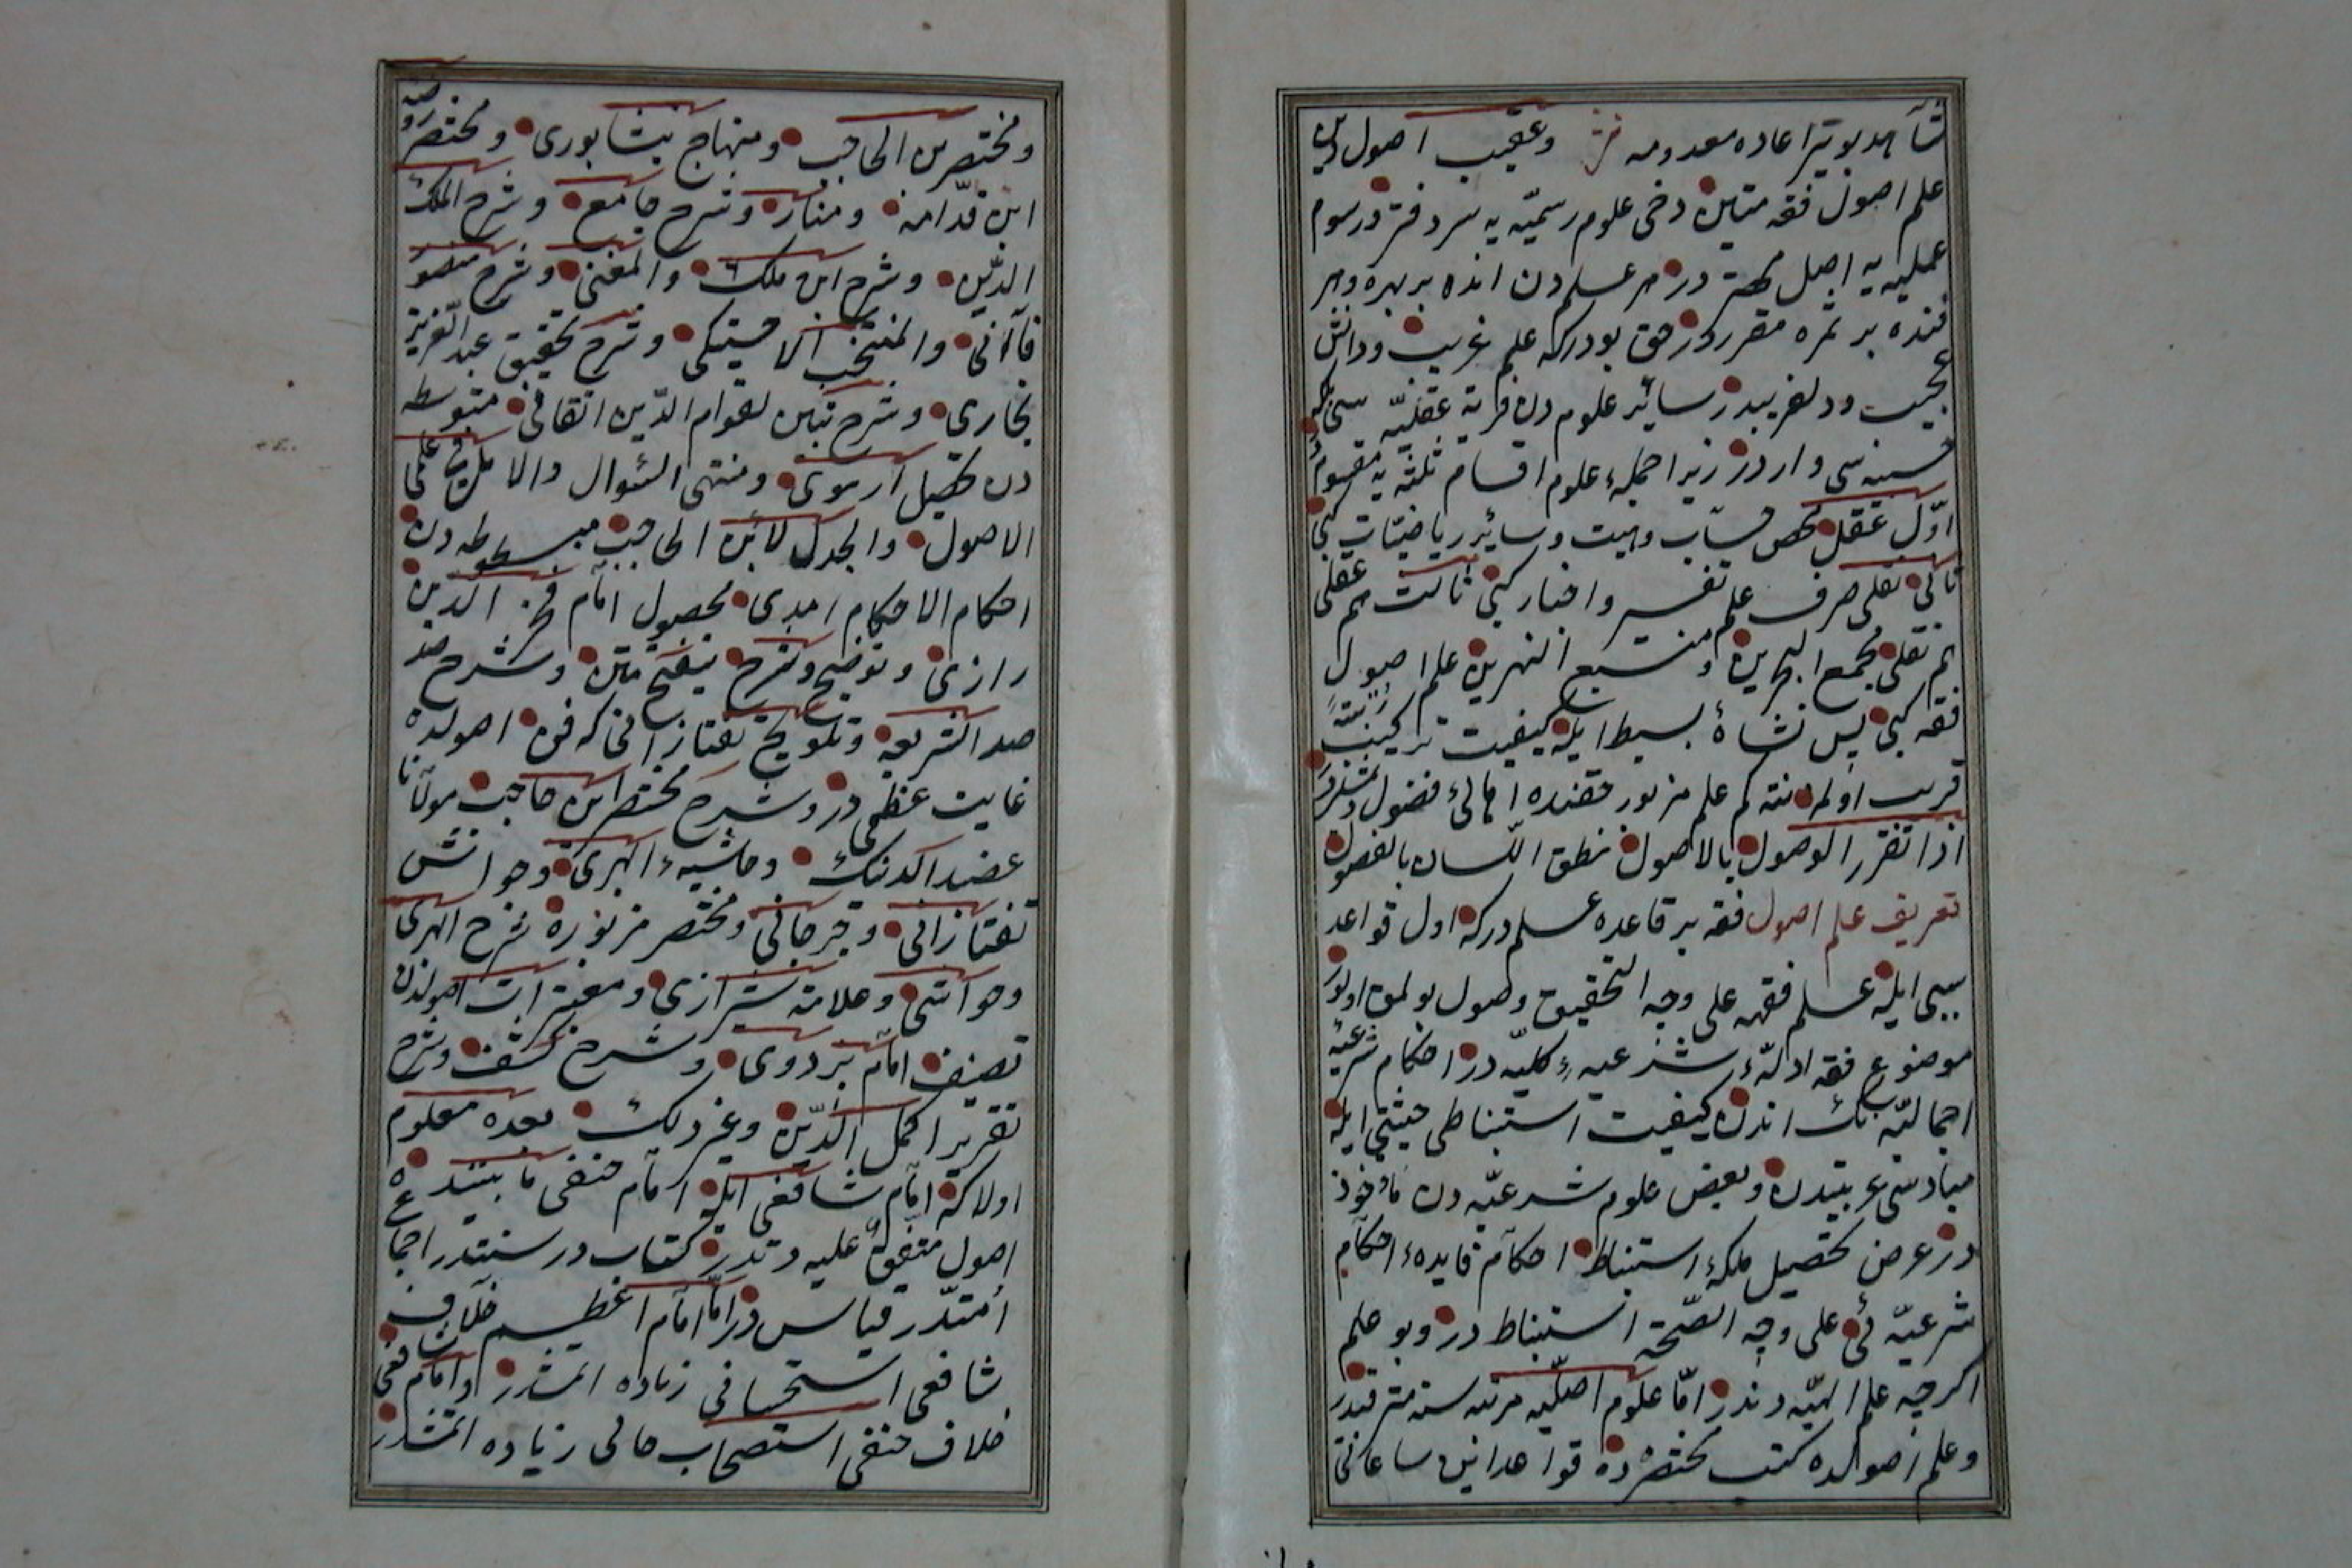 شاهد لا یتیر اعاده معدومه وعقیب اصول دین
علم اصول فقه متین دخی علوم رسمیه یه سر دفتر در رسوم
عملیه یه اصل مهتر در هر علمدن انده بر بهره وهر
فننده بر ثمره مقرر در حق بودرکه علم غریب ودانش
عجیب ودلفریبدر سائر علوم دن قرابة عقلیه سی
حسبنه سی واردر زیرا جمله علوم اقسام ثلثه یه مقسوم
اول عقل محض حساب وهیت وسائر ریاضیات کبی
ثانی نقلی صرف علم تفسیر واخبار کبی ثالث هم عقلی
هم نقلی مجمع البحرین ومنبع النهرین علم اصول
فقه کبی پس نشأة بسیط ایله کیفیت ترکیب
قریب اولمه نته کم علم مزبور حقنده اهالئ فضول
اذا تقرر الوصول بالاصول نطق اللسان بالفصول
تعریف علم اصول فقه بر قاعده علمدرکه اول قواعد
سببی ایله علم فقهه علی وجه التحقیق وصول بولمق اولور
موضوع فقه ادلۀ شرعیه کلیه در احکام شرعیه
اجمالیه نک اندن کیفیت استنباطی حیثیتی ایله
مبادسی عربیتدن وبعض علوم شرعیه دن مأخوذ
در غرض تحصیل ملکۀ استنباط احکام فایدۀ احکام
شرعیه ئی علی وجه الصحة استنباط در وبو علم
اکرچه علم الهیه دندر اما علوم اصلیه مرتبه سنه مترقیدر
وعلم اصولده کتب مختصره ده قواعد ابن ساعاتی
ومختصر بن الحاجب ومنهاج بیضاوری ومختصر
ابن قدامه ومنار وشرح جامع وشرح الملک
الدین وشرح ابن ملک والمغنی وشرح منصور
قاآنی والمنتخب الاخسیکی وشرح تحقیق عبد العزیز
بخاری وشرح تبیین لقوام الدین اتقانی متوسطه
دن تحصیل ارموی ومنتهی السئوال والامل فی علمی
الاصول والجدل لابن الحاجب مبسوطه دن
احکام الاحکام امدی محصول امام فخر الدین
رازی وتوضیح وشرح تنقیح متن وشرح صد
صدر الشریعه وتلویح تفتازانی که فن اصولده
غایت عظمی در وشرح مختصر ابن حاجب مولانا
عضد الدنک وحاشیۀ ابهری وحواشئ
تفتازانی وجرجانی ومختصر مزبوره شرح ابهری
وحواشی وعلامه شیرازی ومعتبرات اصولدن
تصنیف امام بزدوی وشرح کشف وشرح
تقریر اکمل الدین وغیر ذلک بعده معلوم
اولاکه امام شافعی ایله امام حنفی مابینده
اصول متفق علیه دردر کتاب در سنتدر اجماع
امتدر قیاس در اما امام اعظم خلاف
شافعی استحسانی زیاده ایتمشدر وامام شافعی
خلاف حنفی استصحاب حالی زیاده ایتمشدر